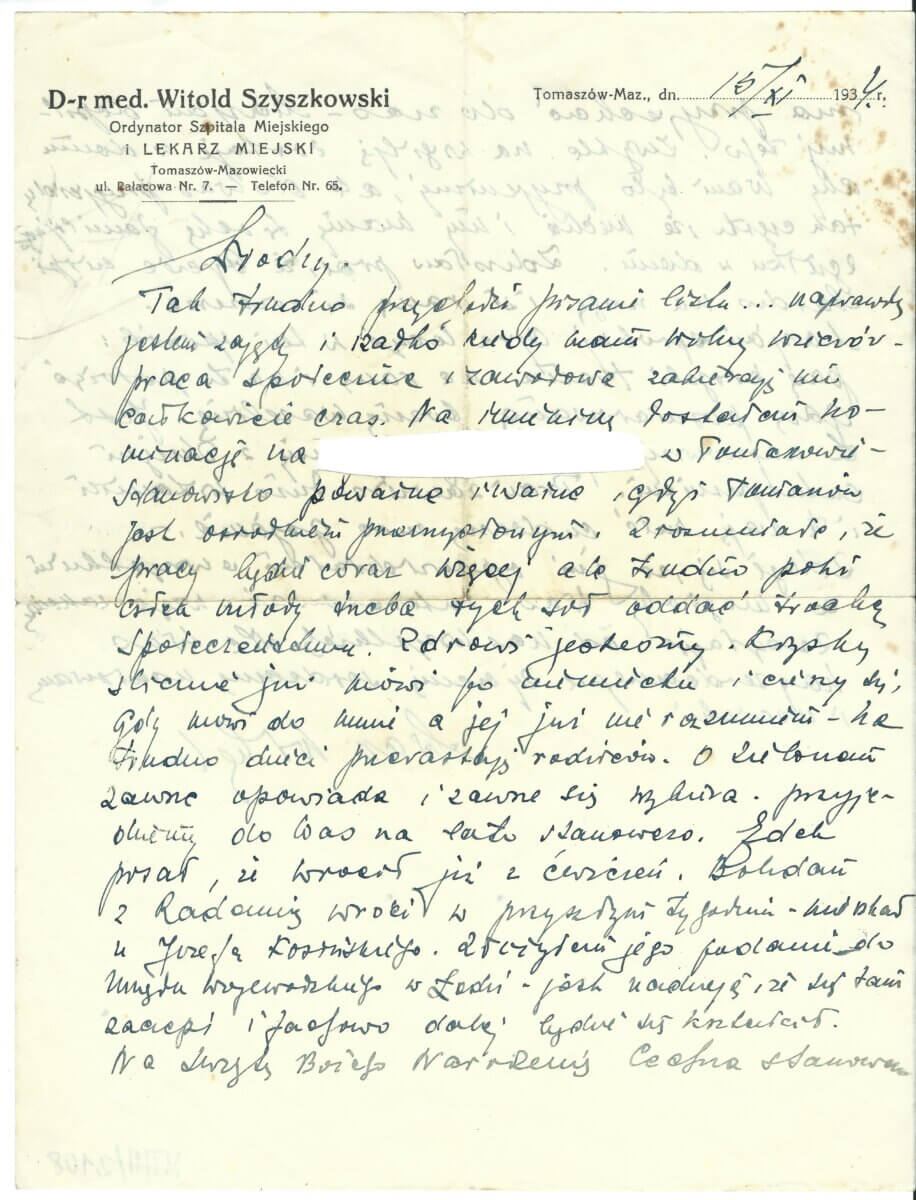 D-r med. Witold Szyszkowski
Ordynator Szpitala Miejskiego
i LEKARZ MIEJSKI
Tomaszów-Mazowiecki
ul. Pałacowa Nr. 7. — Telefon Nr. 65.
Tomaszów-Maz., dn. 15/XI 1934. r.
Drodzy.
Tak trudno pisanie listu... naprawdę
jestem zajęty i rzadko kiedy mam wolny wieczór -
praca społeczna i zawodowa zabierają mi
całkowicie czas. Na imieniny dostałem no-
minację na w Tomaszowie -
stanowisko poważne i ważne, gdyż Tomaszów
jest ośrodkiem przemysłowym. Zrozumiałe, że
pracy będzie coraz więcej ale trudno póki
człek młody trzeba tych sił oddać trochę
społeczeństwu. Zdrowi jesteśmy. Krysia
ślicznie już mówi po niemiecku i cieszy się,
gdy mówi do mnie a jej już nie rozumiem - ha
trudno dzieci przerastają rodziców. O
zawsze opowiada i zawsze się wybiera. Przyje-
dziemy do Was na lato stanowczo. Edek
pisał, że wrócił już z ćwiczeń. Bohdan
z Radomia wróci w przyszłym tygodniu - mieszkał
u Józefa Kosińskiego. Złożyłem jego podanie do
Urzędu Wojewódzkiego w Łodzi - jest nadzieja, że się tam
zaczepi i fachowo dalej będzie się kształcił.
Na Święta Bożego Narodzenia stanowczo